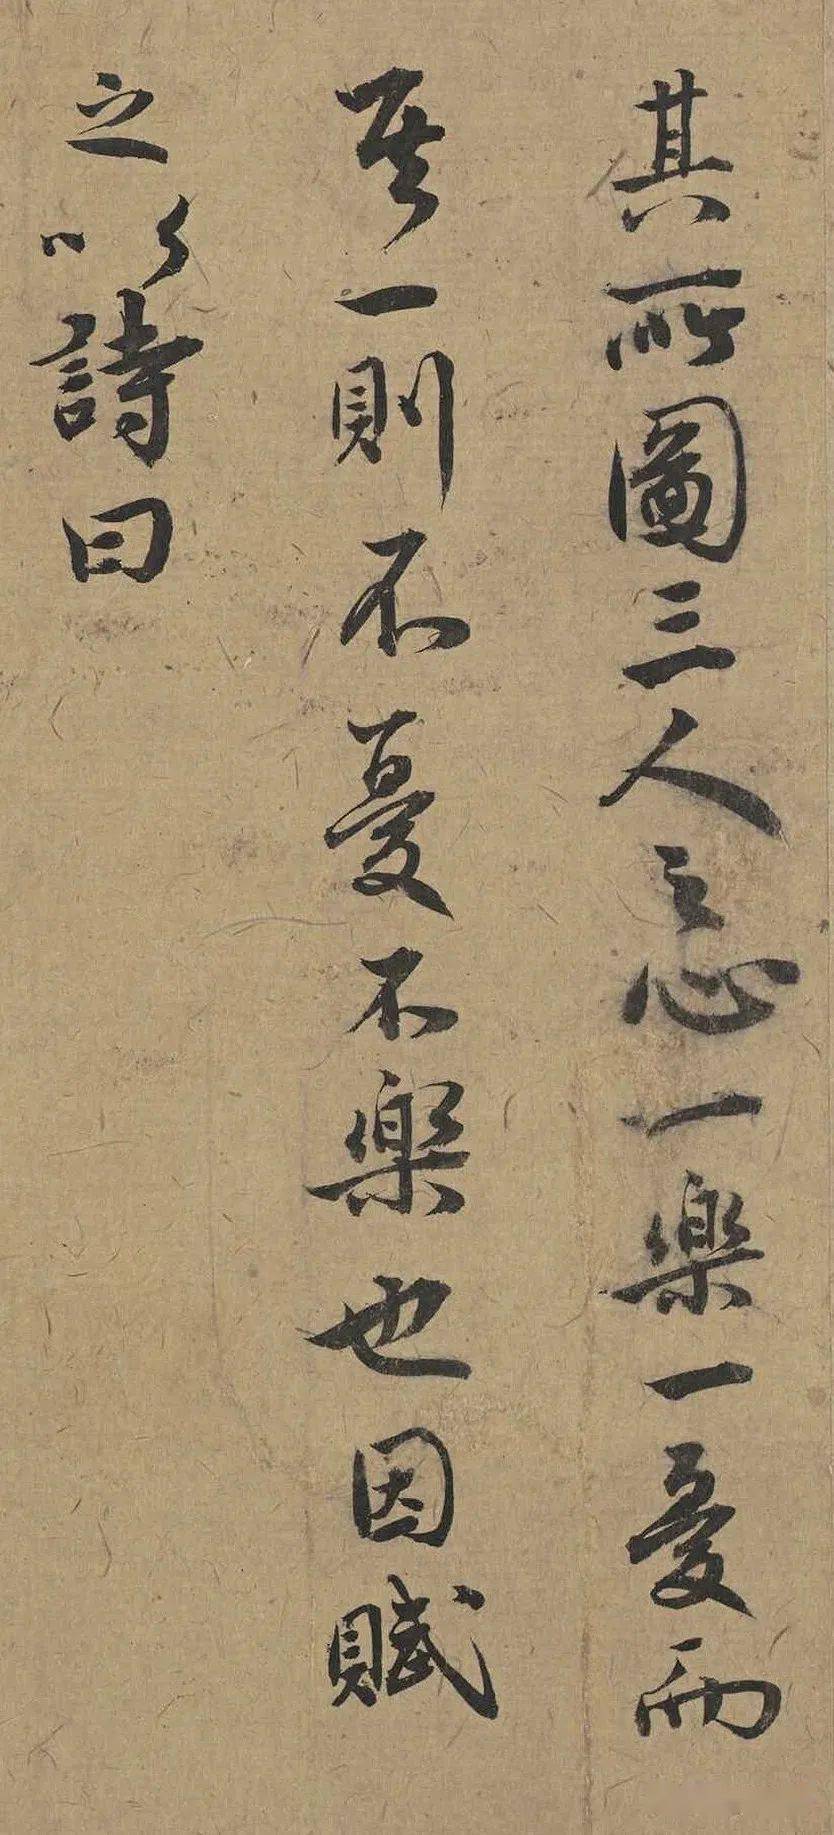 其所圖三人之心一樂一憂而
其一則不憂不樂也因賦
之以詩曰